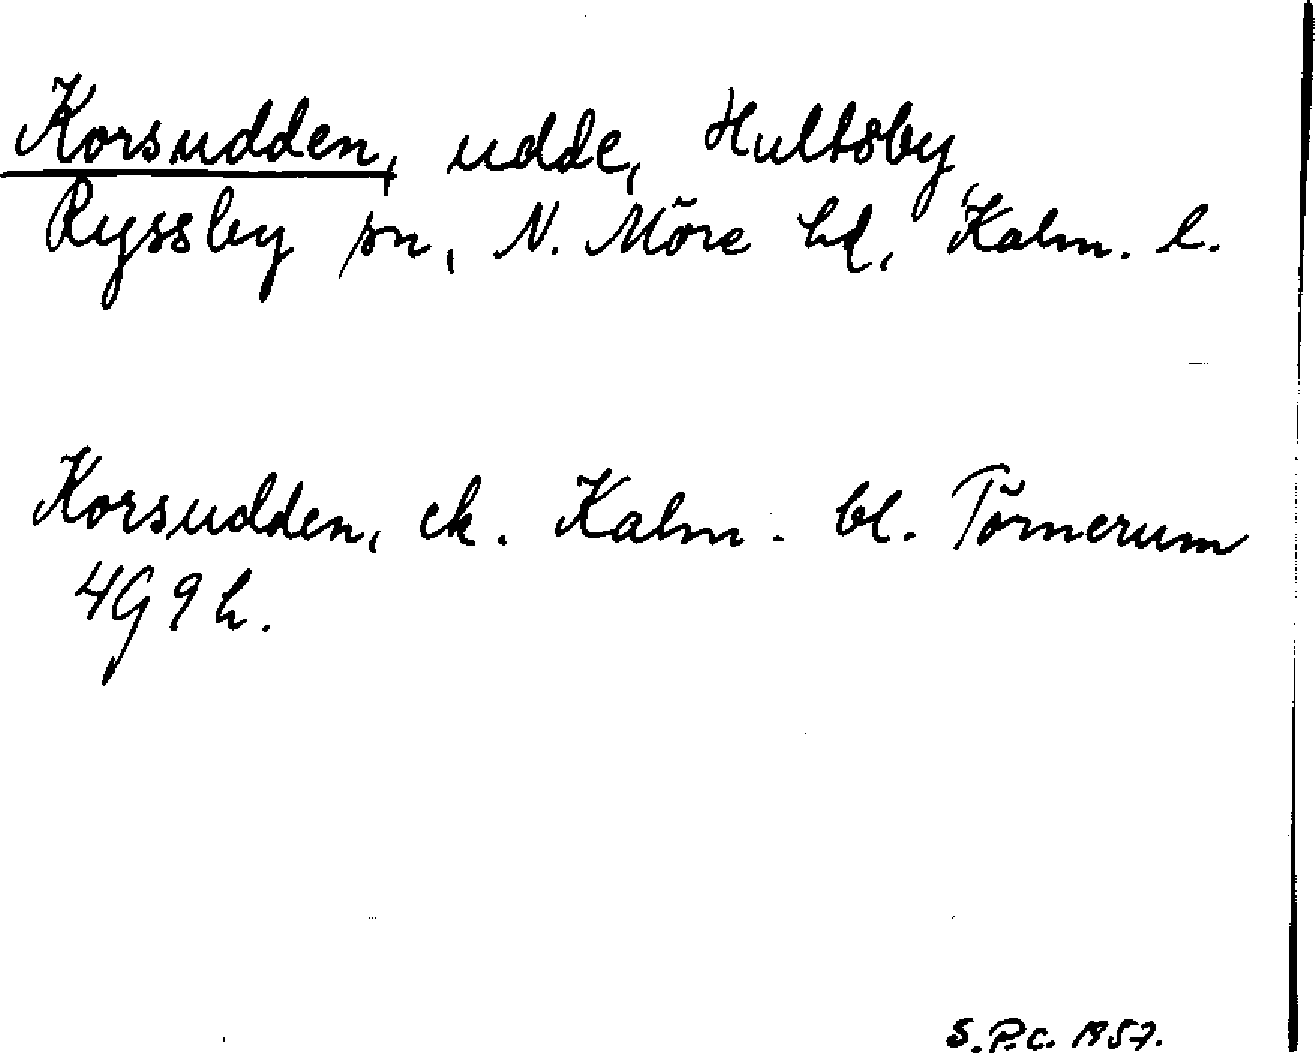 Korsudden, udde, Hultsby,
Ryssby sn, N. Möre hd, Kalm. l.
Korsudden, ek. Kalm. bl. Törnerum
4G9h.
S.P.C. 1957.